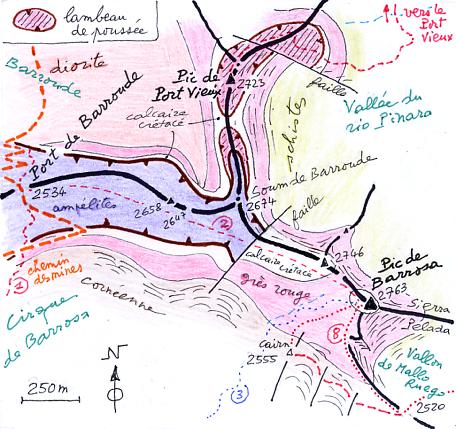 lambeau
de poussée
↑1. vers le
Port
Vieux
diorite
Barroude
Pic de
Port Vieux
2723
faille
calcaire
crétacé
Port de Barroude
schistes
Vallée du
rio Pinara
Soum de Barroude
2674
2534
ampélites
2658
2647
2
faille
chemin
des mines
1
Cornéenne
calcaire crétacé
2746
Pic de
Barrosa
2763
grès rouge
Sierra
Pelada
Cirque
de Barrosa
Cairn
2555
Vallon
de Mallo
Ruego
3
250 m
N
2520